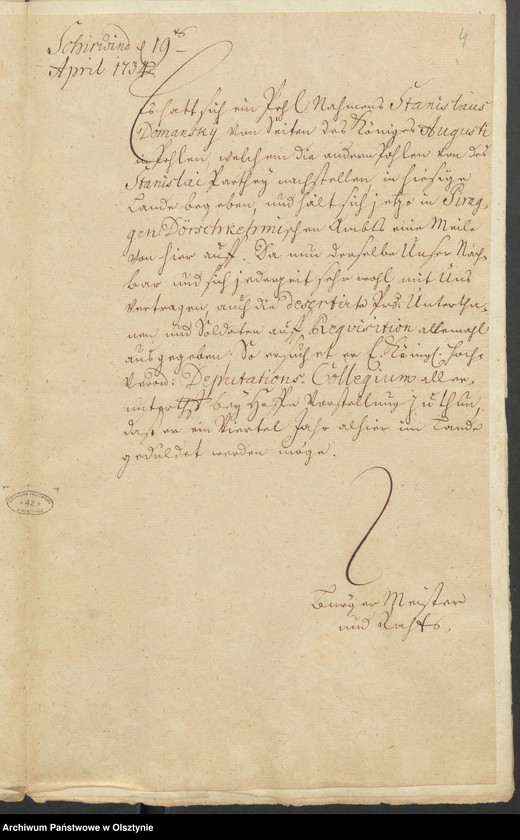 4
Schirwind d 19ᵗ
April 1734
Es hatt sich ein Pohl Nahmens Stanislaus
Domansky von Seiten des Königes Augusti
in Pohlen, welchem die andern Pohlen von des
Stanislai Parthey nachstellen, in hiesige
Lande begeben, und hält sich jetzo in Pirag,
gen Dörschkehmischen Ambts eine Meile
von hier auff. Da nun derselbe Unser Nach,
bar und sich jederzeit sehr wohl mit Uns
vertragen, auch die desertirte Prß. Untertha,
nen und Soldaten auff Requisition allemahl
ausgegeben: So ersuchet er E. Königl. Hoch,
veror: Deputations-Collegium aller,
unterth bey Hoffe Vorstellung zu thun,
daß er ein Viertel Jahr alhier im Lande
geduldet werden möge.
Burger Meister
und Rahts.
42
Archiwum Państwowe w Olsztynie